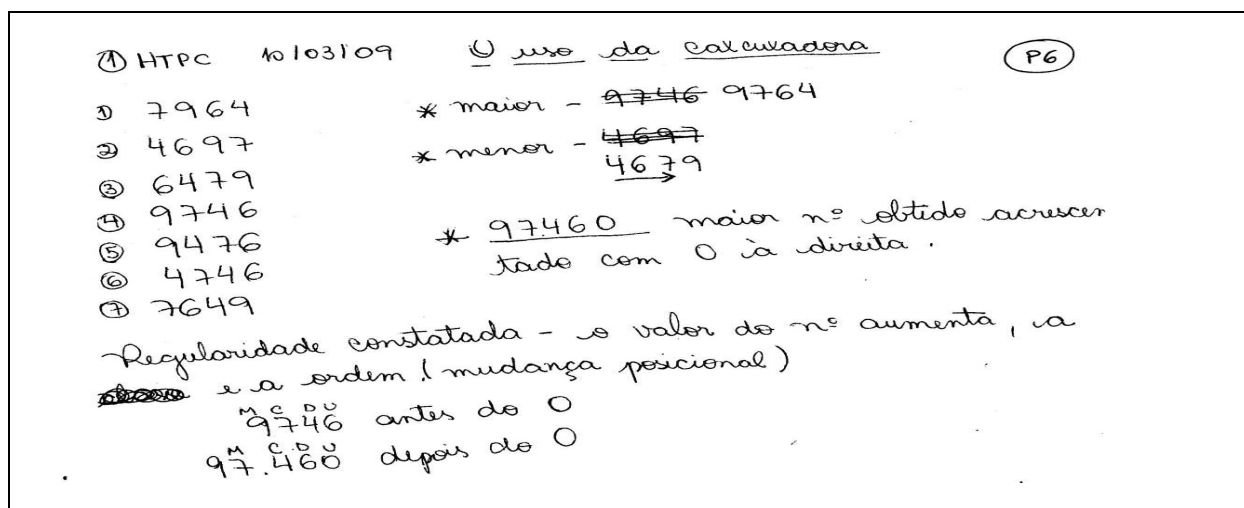 ① HTPC 10/03/09 O uso da calculadora P6
① 7964 * maior - 9746 9764
② 4697 * menor - 4697
4679
③ 6479
④ 9746
⑤ 9476 * 97460 maior nº obtido acrescen
⑥ 4746 tado com 0 à direita.
⑦ 7649
Regularidade constatada - o valor do nº aumenta, a
e a ordem (mudança posicional)
M C D U
9746 antes do 0
M C D U
97.460 depois do 0